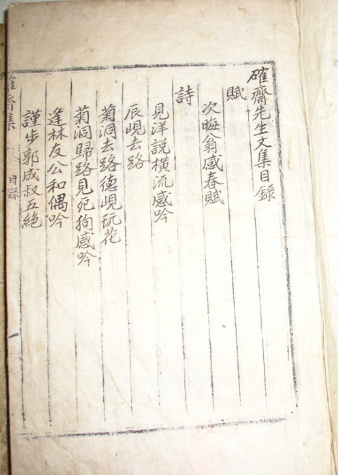 確齋先生文集目錄
賦
次晦翁感春賦
詩
見洋說橫流感吟
辰峴去路
菊洞去路德峴玩花
菊洞歸路見死狗感吟
逢林友公和偶吟
謹步郭成叔五絶
確齋集 目錄